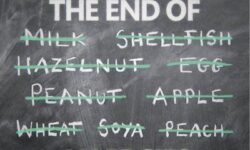 THE END OF
MILK SHELLFISH
HAZELNUT EGG
PEANUT APPLE
WHEAT SOYA PEACH